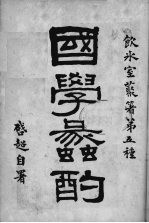 飲冰室叢著第五種
國學蠡酌
啓超自署